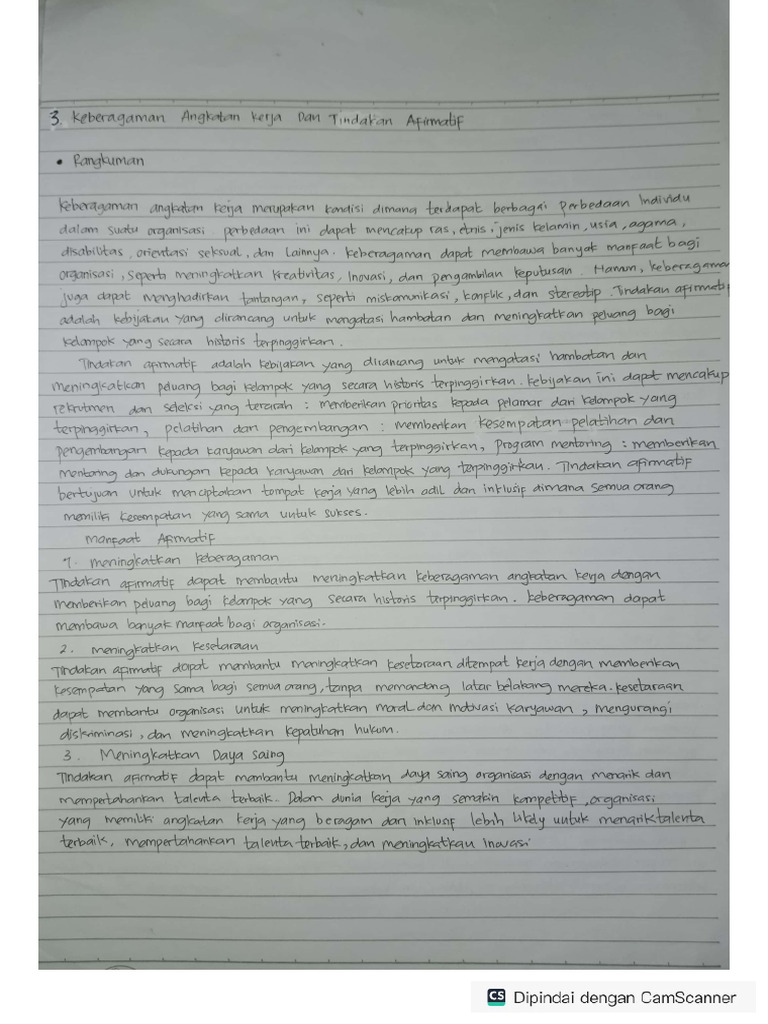 3. Keberagaman Angkatan Kerja Dan Tindakan Afirmatif
• Rangkuman
Keberagaman angkatan kerja merupakan kondisi dimana terdapat berbagai Perbedaan Individu
dalam suatu organisasi. perbedaan ini dapat mencakup ras, etnis, jenis kelamin, usia, agama,
disabilitas, orientasi seksual, dan Lainnya. Keberagaman dapat membawa banyak manfaat bagi
organisasi, seperti meningkatkan kreativitas, Inovasi, dan pengambilan keputusan. Namun, keberagaman
juga dapat menghadirkan tantangan, seperti miskomunikasi, konflik, dan stereotip. Tindakan afirmatif
adalah kebijakan yang dirancang untuk mengatasi hambatan dan meningkatkan peluang bagi
kelompok yang secara historis terpinggirkan.
Tindakan afirmatif adalah kebijakan yang dirancang untuk mengatasi hambatan dan
meningkatkan peluang bagi kelompok yang secara historis terpinggirkan. kebijakan ini dapat mencakup
rekrutmen dan seleksi yang terarah : memberikan prioritas kepada pelamar dari kelompok yang
terpinggirkan, pelatihan dan pengembangan : memberikan kesempatan pelatihan dan
pengembangan kepada karyawan dari kelompok yang terpinggirkan, Program mentoring : memberikan
mentoring dan dukungan kepada karyawan dari kelompok yang terpinggirkan. Tindakan afirmatif
bertujuan untuk menciptakan tempat kerja yang lebih adil dan inklusif dimana semua orang
memiliki kesempatan yang sama untuk sukses.
Manfaat Afirmatif
1. meningkatkan keberagaman
Tindakan afirmatif dapat membantu meningkatkan keberagaman angkatan kerja dengan
memberikan peluang bagi kelompok yang secara historis terpinggirkan. keberagaman dapat
membawa banyak manfaat bagi organisasi.
2. meningkatkan Kesetaraan
Tindakan afirmatif dapat membantu meningkatkan kesetaraan ditempat kerja dengan memberikan
kesempatan yang sama bagi semua orang, tanpa memandang latar belakang mereka. kesetaraan
dapat membantu organisasi untuk meningkatkan moral dan motivasi karyawan, mengurangi
diskriminasi, dan meningkatkan kepatuhan hukum.
3. Meningkatkan Daya saing
Tindakan afirmatif dapat membantu meningkatkan daya saing organisasi dengan menarik dan
mempertahankan talenta terbaik. Dalam dunia kerja yang semakin kompetitif, organisasi
yang memiliki angkatan kerja yang beragam dan inklusif lebih likely untuk menarik talenta
terbaik, mempertahankan talenta terbaik, dan meningkatkan Inovasi.
CS Dipindai dengan CamScanner